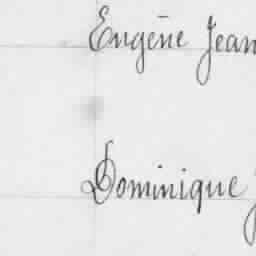 Eugène Jean
Dominique